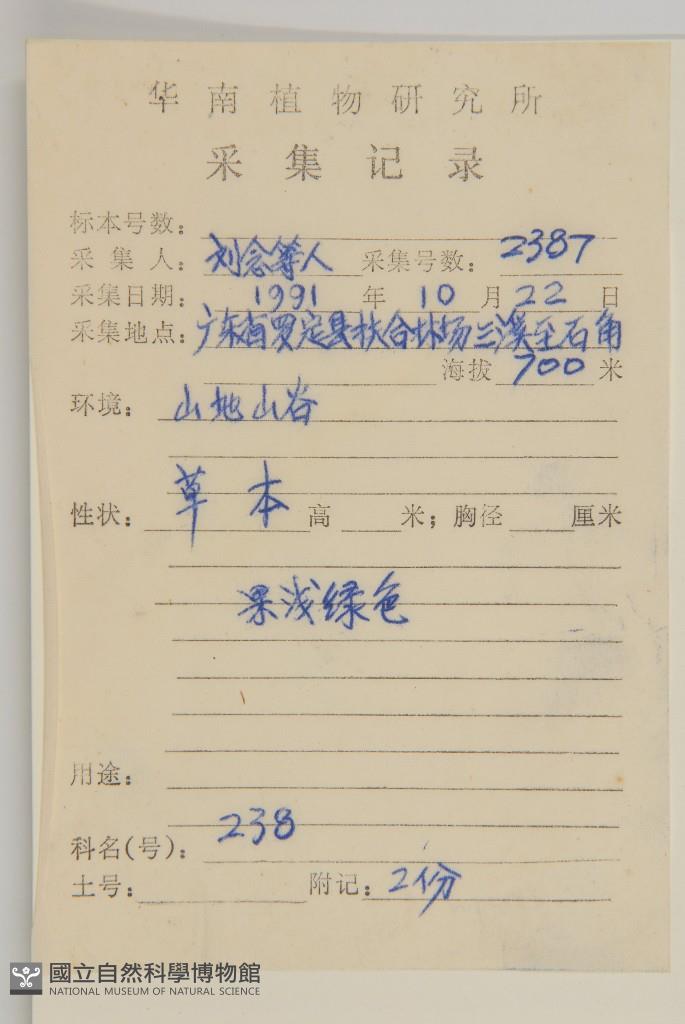 华南植物研究所
采集记录
标本号数：
采集人：刘念等人 采集号数：2387
采集日期：1991年10月22日
采集地点：广东省罗定县扶合林场三溪至石角
海拔700米
环境：山地山谷
性状：草本 高 米；胸径 厘米
果浅绿色
用途：
科名(号)：238
土号： 附记：2份
國立自然科學博物館
NATIONAL MUSEUM OF NATURAL SCIENCE